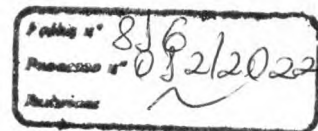 Folha nº 816
Processo nº 012/2022
Rubrica: